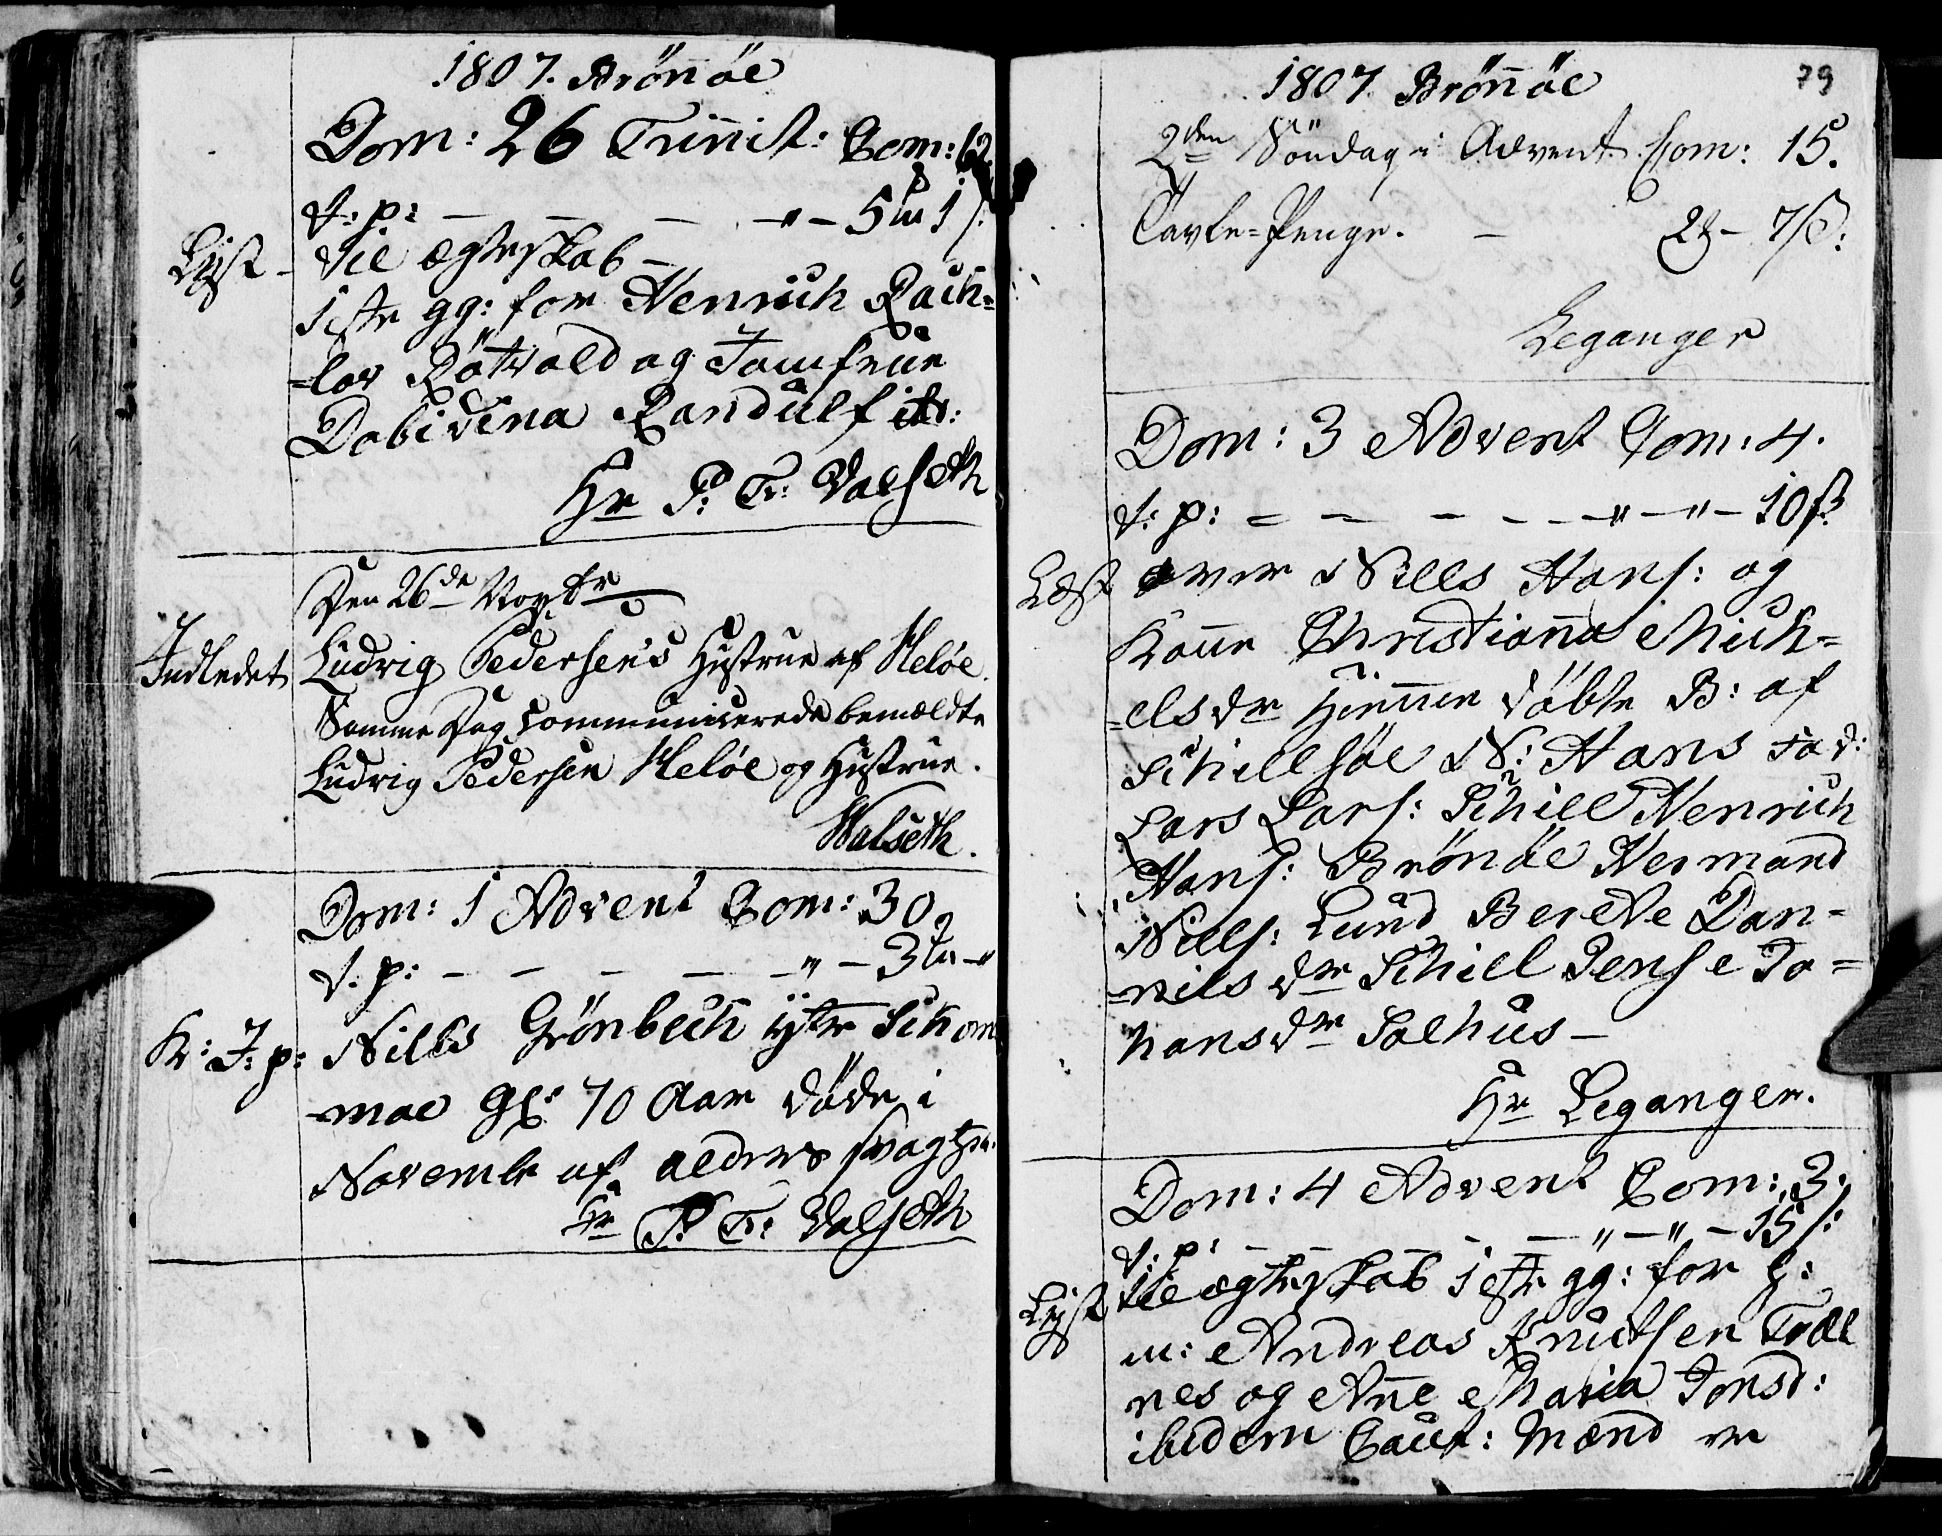 1807. Brönöe
Dom: 26 Trinit: Com: 62
t: p: — — — — " — 5 1 ß:
Lÿst — til ægteskab —
1ste gg: for Henrich Rach=
=lov Rötvold og Jomfrue
Dobidina Randulf
Hr P: Tr: Valseth
Den 26de Novbr
Indledet Ludvig Pedersen's Hustrue af Meløe.
Samme Dag communicerede bemældte
Ludvig Pedersen Meløe og Hustrue.
Walseth.
Dom: 1 Advent Com: 30
t: p: — — — — — " — 3 — "
K: J: p: Nills Grönbech ÿtr Schom
=moe gl: 70 Aar døde i
Novembr af alders svaghed
Hr P: Tr: Valseth
1807 Brönöe 79
2den Söndag i Advent Com: 15.
Tavle=Penge. — 2 — 7 ß:
Leganger
Dom: 3 Advent Com: 4.
t: p: — — — — — " — " — 10 ß
Læst over Nills Hans: og
Kone Christiana Mich=
=elsdr hiemme döbte B: af
Schillsöe N: Hans Fad:
Lars Lars: Schill Henrich
Hans: Brönöe Hermand
Niels: Lund Berethe Dan=
=niels dr Schiel Jense Jo=
hansdr Solhus —
Hr Leganger.
Dom: 4 Advent Com: 3.
t: p: — — — — — " — " — 15 ß:
Lÿst til ægteskab 1ste gg: for
m: Andreas Knudsen Troe
nes og Ane Maria Jonsd:
ibidem Caut: Mænd er